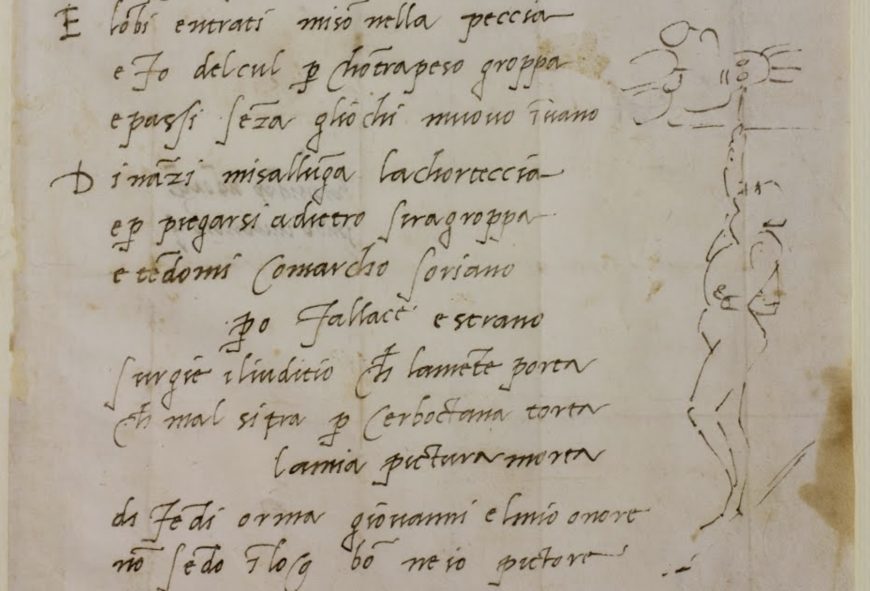 E lōbi entrati misō nella peccia
e fo delcul p̱ chōtrapeso groppa
e passi sēza gliochi muovo īvano
D ināzi misallūga lachorteccia
e p̱ piegarsi adietro siragroppa
e tēdomi comarcho soriano
p̱o fallace e strano
surgie iliuditio ch̄ lamēte porta
ch̄ mal si tra p̱ cerboctana torta
lamia pictura morta
di fēdi orma giovanni elmio onore
nō sēdo īlog̱ bō ne io pictore